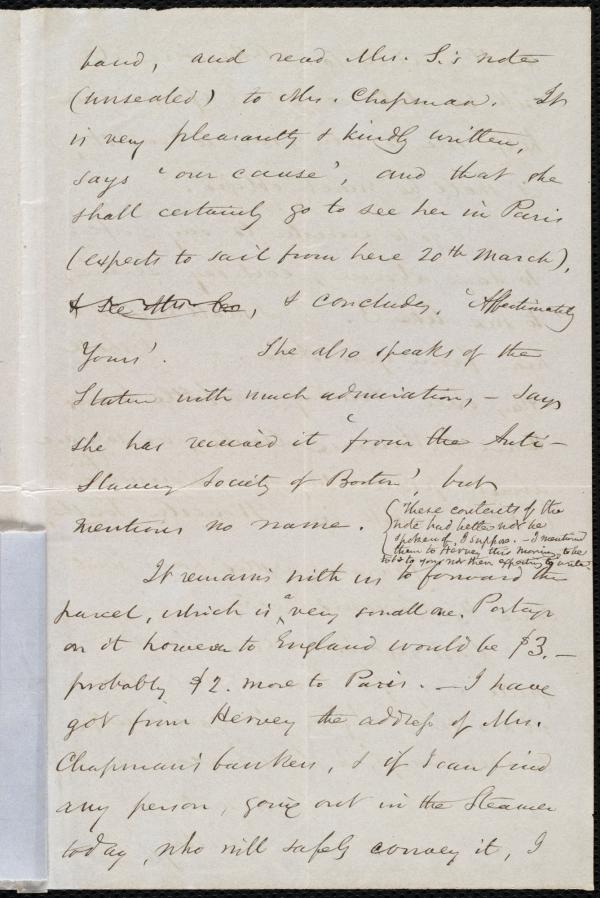 hand, and read Mrs. S.'s note
(unsealed) to Mrs. Chapman. It
is very pleasantly & kindly written,
says 'our cause', and that she
shall certainly go to see her in Paris
(expects to sail from here 20th March),
& see Mrs, & concludes, 'Affectionately
Yours'. She also speaks of the
Statue with much admiration, - says
she has received it 'from the Anti-
Slavery Society of Boston', but
mentions no name.
{These contents of the
note had better not be
spoken of, I suppose. - I mentioned
them to Hervey this morning, to be
told to you, not then expecting to write.
It remains with us to forward the
parcel, which is a very small one. Postage
on it however to England would be $3. -
probably $2. more to Paris. - I have
got from Hervey the address of Mrs.
Chapman's bankers, & if I can find
any person, going out in the Steamer
today, who will safely convey it, I